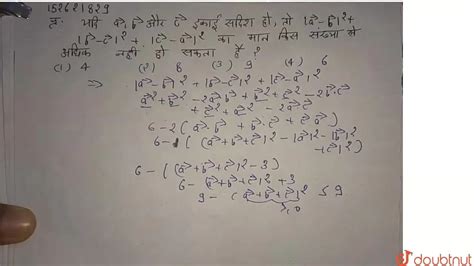 152621829
प्र: यदि a⃗, b⃗ और c⃗ इकाई सदिश हो, तो |a⃗-b⃗|²+
|b⃗-c⃗|² + |c⃗-a⃗|² का मान किस संख्या से
अधिक नहीं हो सकता है ?
(1) 4 (2) 8 (3) 9 (4) 6
⇒ |a⃗-b⃗|² + |b⃗-c⃗|² + |c⃗-a⃗|²
a⃗²+b⃗² -2a⃗b⃗ +b⃗²+c⃗² -2b⃗c⃗
+c⃗²+a⃗² -2a⃗c⃗
6-2(a⃗.b⃗ + b⃗.c⃗ + c⃗.a⃗)
6-((a⃗+b⃗+c⃗)² -|a⃗|²-|b⃗|²
-|c⃗|²)
6-((a⃗+b⃗+c⃗)²-3)
6-(a⃗+b⃗+c⃗)²+3
9-(a⃗+b⃗+c⃗)² ≤9
≥0
doubtnut